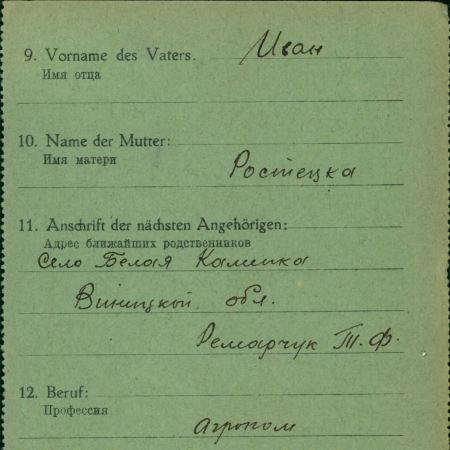 9. Vorname des Vaters. Иван
Имя отца
10. Name der Mutter:
Имя матери
Ростецка
11. Anschrift der nächsten Angehörigen:
Адрес ближайших родственников
Село Белая Камепка
Виницкой обл.
Ремарчук Т. Ф.
12. Beruf:
Профессия
агроном